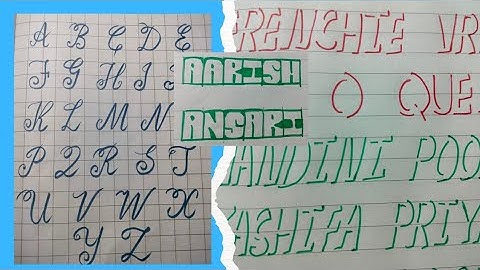 A B C D E
F G H I
K L M N
P Q R S T
U V W X
Y Z
AARISH
ANSARI
FRENCHIE VR
O QUE
ANDINI POO
KASHIFA PRIY